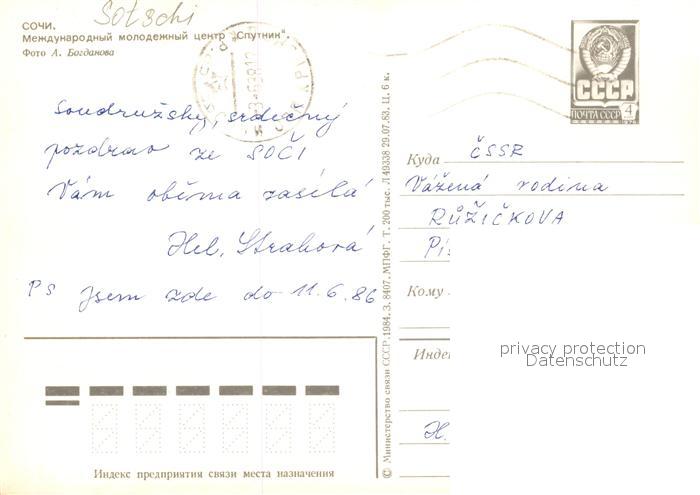 Sotschi
СОЧИ.
Международный молодежный центр „Спутник".
Фото А. Богданова
СССР
ПОЧТА СССР 4
Soudružský, srdečný
pozdrav ze SOČI
Vám oběma zasílá
Hel. Straková
PS Jsem zde do 11.6.86
© Министерство связи СССР. 1984. З. 8407. МПФГ. Т. 200 тыс. Л 49338 29.07.83. Ц. 6 к.
Куда ČSSR
Vážená rodina
RŮŽIČKOVA
Pís
Кому
Инде
H.
privacy protection
Datenschutz
Индекс предприятия связи места назначения